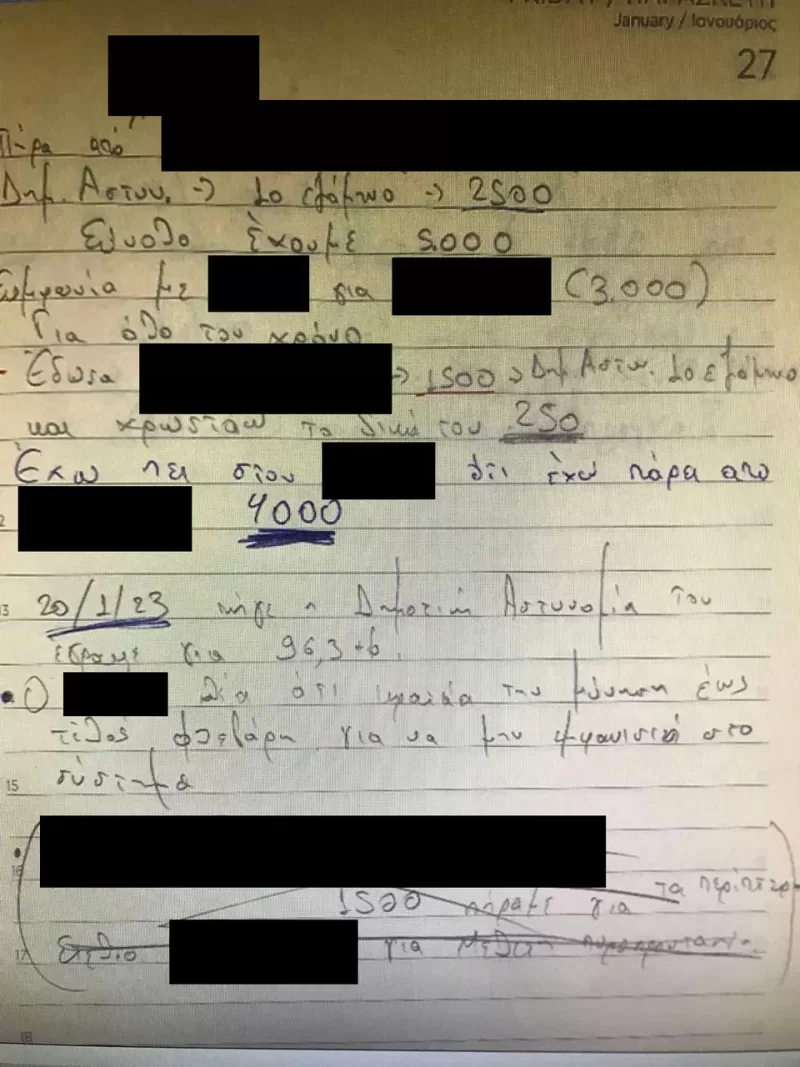 January / Ιανουάριος
27
Πήρα από
Δημ. Αστυν. → 1ο εξάμηνο → 2500
Σύνολο έχουμε 5.000
Συμφωνία με για (3.000)
Για όλο τον χρόνο
- Έδωσα → 1500 → Δημ Αστυν. 1ο εξάμηνο
και χρωστάω το δικό του 250
Έχω πει στον ότι έχω πάρει από
4000
13 20/1/23 πήγε η Δημοτική Αστυνομία του
έγραψε για 96,3 τ.
• Ο λέει ότι κρατάει την μήνυση έως
τέλος Φλεβάρη για να μην εμφανιστεί στο
15 σύστημα
16
1500 πήραμε για τα περίπτερ
17 για
18